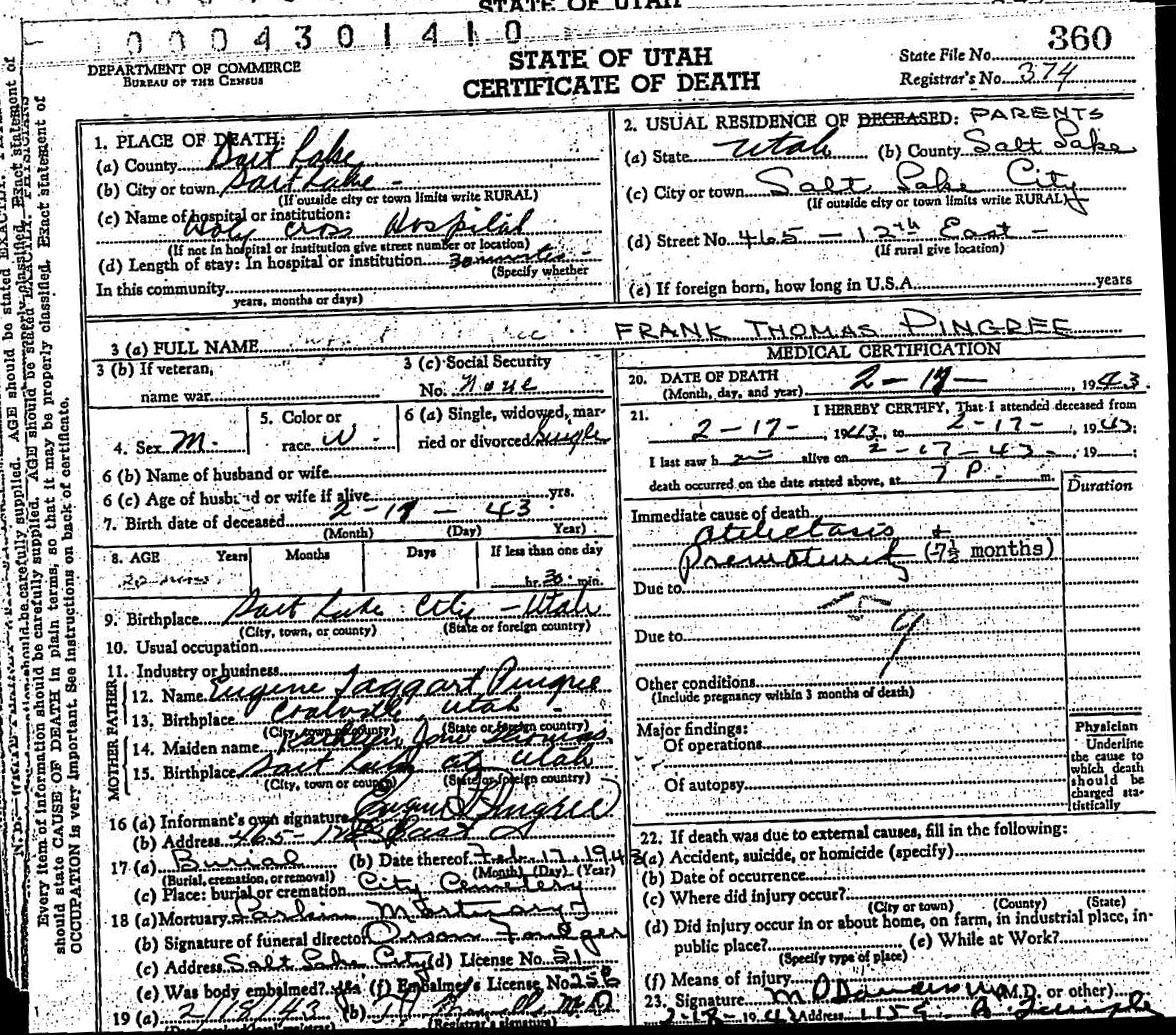 STATE OF UTAH
0004301410
DEPARTMENT OF COMMERCE
BUREAU OF THE CENSUS
STATE OF UTAH
CERTIFICATE OF DEATH
State File No. 360
Registrar's No. 374
1. PLACE OF DEATH:
(a) County Salt Lake
(b) City or town Salt Lake -
(If outside city or town limits write RURAL)
(c) Name of hospital or institution:
Holy Cross Hospital
(If not in hospital or institution give street number or location)
(d) Length of stay: In hospital or institution 30 minutes -
(Specify whether
In this community
years, months or days)
2. USUAL RESIDENCE OF DECEASED: PARENTS
(a) State Utah (b) County Salt Lake
(c) City or town Salt Lake City
(If outside city or town limits write RURAL)
(d) Street No. 465 - 12th East -
(If rural give location)
(e) If foreign born, how long in U.S.A. years
3 (a) FULL NAME FRANK THOMAS PINGREE
3 (b) If veteran,
name war
3 (c) Social Security
No. none
4. Sex M.
5. Color or
race W
6 (a) Single, widowed, mar-
ried or divorced Single
6 (b) Name of husband or wife
6 (c) Age of husband or wife if alive yrs.
7. Birth date of deceased 2-17-43
(Month) (Day) Year)
8. AGE Years Months Days If less than one day
hr. 30 min.
9. Birthplace Salt Lake City - Utah
(City, town, or county) (State or foreign country)
10. Usual occupation
11. Industry or business
FATHER
12. Name Eugene Taggart Pingree
13. Birthplace Coalville, Utah -
(City, town or county) (State or foreign country)
MOTHER
14. Maiden name Kathryn Jane Thomas
15. Birthplace Salt Lake City Utah
(City, town or county) (State or foreign country)
16 (a) Informant's own signature Eugene T. Pingree
(b) Address 465-12th East
17 (a) Burial (b) Date thereof Feb. 17, 1943
(Burial, cremation, or removal) (Month) (Day) (Year)
(c) Place: burial or cremation City Cemetery
18 (a) Mortuary Mortuary
(b) Signature of funeral director
(c) Address Salt Lake City (d) License No. 51
(e) Was body embalmed? yes (f) Embalmer's License No. 258
19 (a) 2/18/43 (b) M.D.
(Registrar's signature)
MEDICAL CERTIFICATION
20. DATE OF DEATH 2-17- 1943
(Month, day, and year)
21. I HEREBY CERTIFY, That I attended deceased from
2-17-, 1943, to 2-17-, 1943;
I last saw h alive on 2-17-43-, 19 ;
death occurred on the date stated above, at 7 P. m.
Duration
Immediate cause of death
Atelectasis +
Prematurity (7½ months)
Due to
Due to
Other conditions
(Include pregnancy within 3 months of death)
Major findings:
Of operations
Of autopsy
Physician
Underline
the cause to
which death
should be
charged sta-
tistically
22. If death was due to external causes, fill in the following:
(a) Accident, suicide, or homicide (specify)
(b) Date of occurrence
(c) Where did injury occur?
(City or town) (County) (State)
(d) Did injury occur in or about home, on farm, in industrial place, in-
public place? (e) While at Work?
(Specify type of place)
(f) Means of injury
23. Signature (M.D. or other)
2-18-1943 Address
Every item of information should be carefully supplied. AGE should be stated EXACTLY.
should state CAUSE OF DEATH in plain terms, so that it may be properly classified. Exact statement of
OCCUPATION is very important. See instructions on back of certificate.